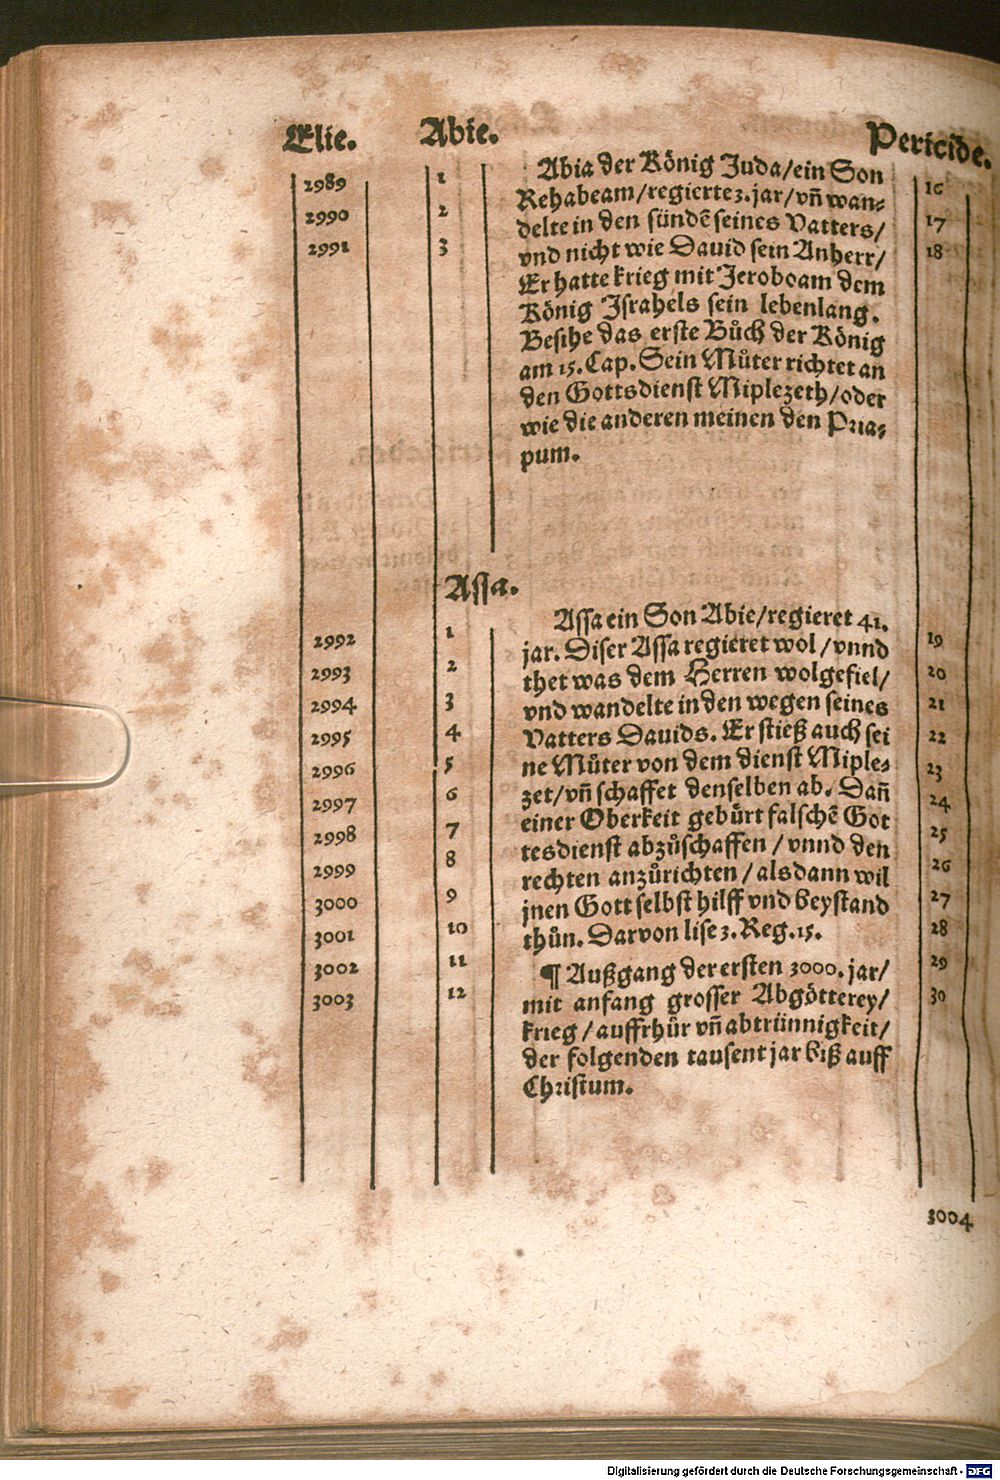 Elie. Abie. Pericide.
2989 1 Abia der König Juda/ein Son 16
Rehabeam/regierte 3. jar/vñ wan⸗
2990 2 delte in den sündẽ seines Vatters/ 17
2991 3 vnd nicht wie Dauid sein Anherr/ 18
Er hatte krieg mit Jeroboam dem
König Jsrahels sein lebenlang.
Besihe das erste Bůch der König
am 15. Cap. Sein Můter richtet an
den Gottsdienst Miplezeth/oder
wie die anderen meinen den Pria⸗
pum.
Assa.
Assa ein Son Abie/regieret 41.
2992 1 jar. Diser Assa regieret wol/vnnd 19
2993 2 thet was dem Herren wolgefiel/ 20
2994 3 vnd wandelte in den wegen seines 21
2995 4 Vatters Dauids. Er stieß auch sei 22
2996 5 ne Můter von dem dienst Miple⸗ 23
2997 6 zet/vñ schaffet denselben ab. Dañ 24
einer Oberkeit gebürt falschẽ Got
2998 7 tesdienst abzůschaffen/vnnd den 25
2999 8 rechten anzůrichten/alsdann wil 26
3000 9 jnen Gott selbst hilff vnd beystand 27
3001 10 thůn. Darvon lise 3. Reg. 15. 28
3002 11 ¶ Außgang der ersten 3000. jar/ 29
3003 12 mit anfang grosser Abgötterey/ 30
krieg/auffrhůr vñ abtrünnigkeit/
der folgenden tausent jar biß auff
Christum.
3004
Digitalisierung gefördert durch die Deutsche Forschungsgemeinschaft - DFG